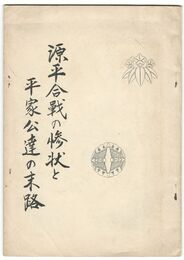 源平合戰の惨状と
平家公達の末路